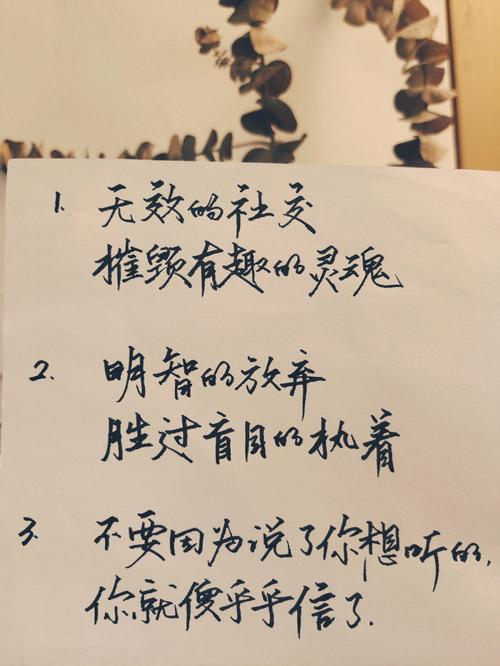 1. 无效的社交
摧毁有趣的灵魂
2. 明智的放弃
胜过盲目的执着
3. 不要因为说了你想听的,
你就傻乎乎信了.